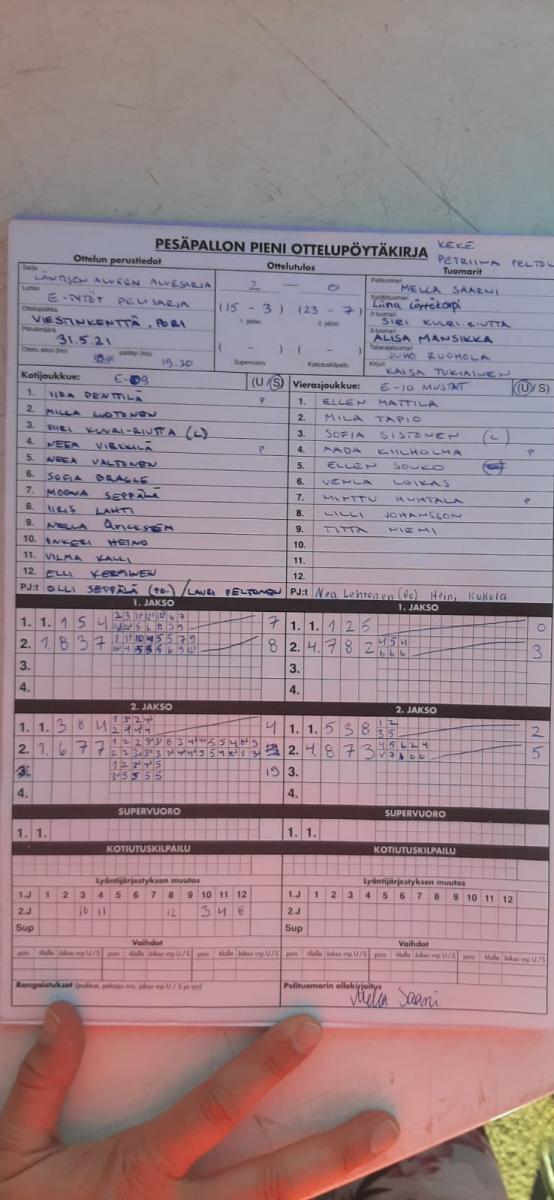 PESÄPALLON PIENI OTTELUPÖYTÄKIRJA
KEKE
PETRIINA PELTO
Ottelun perustiedot
Ottelutulos
Tuomarit
Sarja LÄNTISEN ALUEEN ALUESARJA
Lohko E-TYTÖT PELISARJA
Ottelupaikka VIESTINKENTTÄ, PORI
Päivämäärä 31.5.21
Ottelu alkoi (klo) päättyi (klo) 19.30
2 — 0
(15 - 3) (23 - 7)
1. jakso 2. jakso
( - ) ( - )
Supervuoro Kotiutuskilpailu
Pelituomari MELLA SAARNI
Syöttötuomari Liina
2-tuomari SIIRI KUURI-RIUTTA
3-tuomari ALISA MANSIKKA
Takarajatuomari JUHO RUOHOLA
Kirjuri KAISA TUKIAINEN
Kotijoukkue: E-09 (U/S)
1. IIDA PENTTILÄ P
2. MILLA LUOTONEN
3. SIIRI KUURI-RIUTTA (C)
4. NEEA VIRKKILÄ P
5. NEEA VALTONEN
6. SOFIA
7. MOONA SEPPÄLÄ
8. IIRIS LAHTI
9. NELLA
10. INKERI HEINO
11. VILMA KALLI
12. ELLI
PJ:t OLLI SEPPÄLÄ (PO.) / LAURI PELTONEN
Vierasjoukkue: E-10 MUSTAT (U/S)
1. ELLEN MATTILA
2. MILA TAPIO
3. SOFIA SISTONEN (C)
4. AADA KIILHOLMA P
5. ELLEN SOUKO
6. VENLA LOIKAS
7. MINTTU HUHTALA P
8. LILLI JOHANSSON
9. TITTA NIEMI
10.
11.
12.
PJ:t Nea Lehtonen (PO) Heini Kukola
1. JAKSO
1. 1. 1 5 4 7
2. 1. 8 3 7 8
3.
4.
1. JAKSO
1. 1. 1 2 5 0
2. 4. 7 8 2 4 5 4 3
6 6 6
3.
4.
2. JAKSO
1. 1. 3 8 4 4
2. 1. 6 7 7
3. 19
4.
2. JAKSO
1. 1. 5 3 8 1 2 2
3 5
2. 4. 8 7 3 4 5 6 2 4 5
3.
4.
SUPERVUORO
1. 1.
SUPERVUORO
1. 1.
KOTIUTUSKILPAILU
KOTIUTUSKILPAILU
Lyöntijärjestyksen muutos
1.J 1 2 3 4 5 6 7 8 9 10 11 12
2.J 10 11 12 3 4 8
Sup
Lyöntijärjestyksen muutos
1.J 1 2 3 4 5 6 7 8 9 10 11 12
2.J
Sup
Vaihdot
pois tilalle Jakso vrp U/S pois tilalle Jakso vrp U/S
Vaihdot
pois tilalle Jakso vrp U/S pois tilalle Jakso vrp U/S
Rangaistukset (joukkue, pelaaja nro, jakso vrp U/S pr ryy)
Pelituomarin allekirjoitus
Mella Saarni